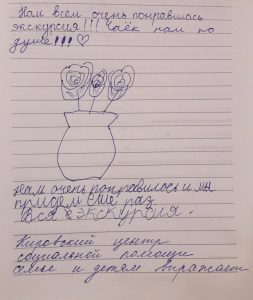 Нам всем очень понравилась
экскурсия!!! Чаёк нам по
душе!!!♡
Нам очень понравилось и мы
придем еще раз
Вся экскурсия.
Кировский центр
социальной помощи
семье и детям выражает